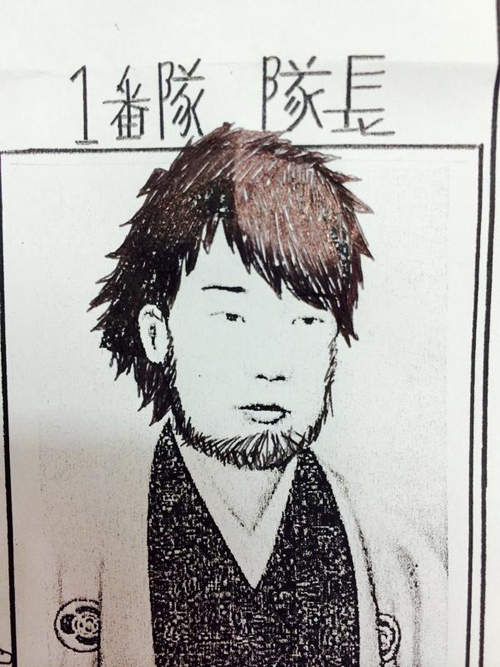 1番隊 隊長